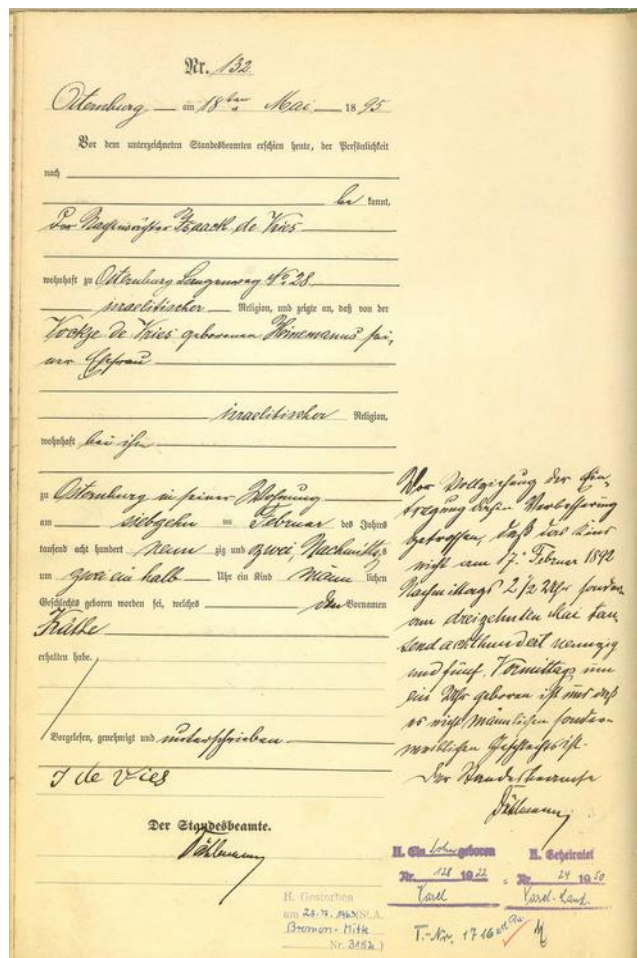 Nr. 132.
Osternburg am 18ten Mai 1895
Vor dem unterzeichneten Standesbeamten erschien heute, der Persönlichkeit
nach
be kannt,
Isaack de Vries
wohnhaft zu Osternburg Langenweg No 28
israelitischer Religion, und zeigte an, daß von der
de Vries geborenen Heinemanns sei,
ner Ehefrau
israelitischer Religion,
wohnhaft bei ihm
zu Osternburg in seiner Wohnung
am siebzehn ten Februar des Jahres
tausend acht hundert neun zig und zwei, Nachmittags
um zwei ein halb Uhr ein Kind männ lichen
Geschlechts geboren worden sei, welches den Vornamen
Käthe
erhalten habe.
Vorgelesen, genehmigt und unterschrieben
J de Vies
Der Standesbeamte.
Vor Vollziehung der Ein,
tragung diese Verbesserung
getroffen, daß das Kind
nicht am 17. Februar 1892
Nachmittags 2 1/2 Uhr sondern
am dreizehnten Mai tau,
sendachthundert neunzig
und fünf, Vormittags um
ein Uhr geboren ist und daß
es nicht männlichen sondern
weiblichen Geschlechts ist.
Der Standesbeamte
H. Ein Sohn geboren
Nr. 128 1922
Varel
H. Geheiratet
Nr. 24 1950
Varel-Land
H. Gestorben
am 23.7.1963 (St.A.
Bremen-Mitte
Nr. 3152)
T.-Nr. 1716